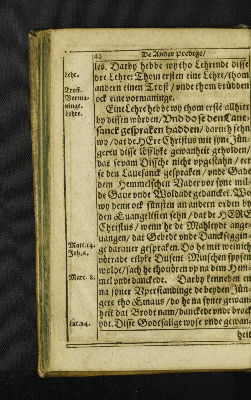 De Ander Predige/
les. Darby hebbe wy tho Lehrende disse
dre Lehre: Thom ersten eine Lehre/thom
andern einen Trost / vnde thom drüdden
ock eine vormaninge.
Eine Lehre hebbe wy thom erste allhier
by dissen wörden/ Vnd do se den
sanck gespraken hadden/ daruth sehn
wy/dat de HErr Christus mit syne Jün-
gern disse löfflyke gewanheit geholden/
dat se vam Dissche nicht vpgestahn/
se den Lauesanck gespraken / vnde Gade
dem Hemmelschen Vader vor syne mil-
de Gaue vnde Woldadt gedancket.
wy denn ock sünsten an andern orden by
den Euangelisten sehn / dat de HERE
Christus / wenn he de Mahltydt ange-
uangen/ dat Gebedt vnde Dancksegginge
darauer gespraken. Do he mit weinich
vörrade etlyke Dusent Minschen spysen
woldt/sach he thouörn vp na dem Hem-
mel vnde danckede. Darby kenneden en
na syner Vperstandinge de beyden Jün-
gere tho Emaus/ do he na syner gewan-
heit dat Brodt nam/danckede vnde brock
ydt. Disse Godtsalige wyse vnde gewan-
heit
Lehre.
Trost.
Vorma-
ninge.
Lehre.
Matt. 14.
Joh. 6.
Marc. 8.
Luc. 24.